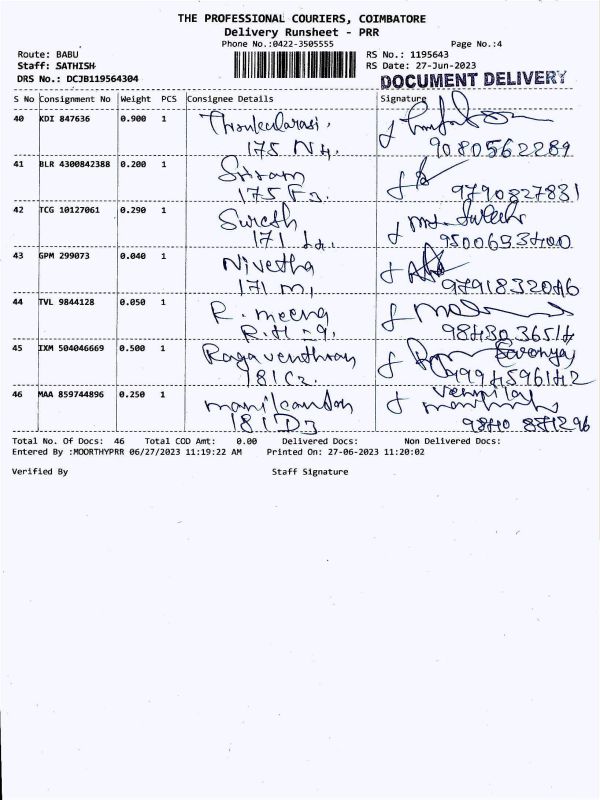 THE PROFESSIONAL COURIERS, COIMBATORE
Delivery Runsheet - PRR
Phone No.:0422-3505555 Page No.:4
Route: BABU RS No.: 1195643
Staff: SATHISH RS Date: 27-Jun-2023
DRS No.: DCJB119564304 DOCUMENT DELIVERY
S No Consignment No Weight PCS Consignee Details Signature
40 KDI 847636 0.900 1
175 N4. 9080562289
41 BLR 4300842388 0.200 1 Sriram
175 F3. 9790827831
42 TCG 10127061 0.290 1 Suresh
171 9500693400
43 GPM 299073 0.040 1 Nivetha
171 M1 9791832046
44 TVL 9844128 0.050 1 R. meena
R.H-9. 9843036514
45 IXM 504046669 0.500 1 Ragaventhran
181 C2. 9994596142
46 MAA 859744896 0.250 1 manikandan
181 D3 98410 871296
Total No. Of Docs: 46 Total COD Amt: 0.00 Delivered Docs: Non Delivered Docs:
Entered By :MOORTHYPRR 06/27/2023 11:19:22 AM Printed On: 27-06-2023 11:20:02
Verified By Staff Signature